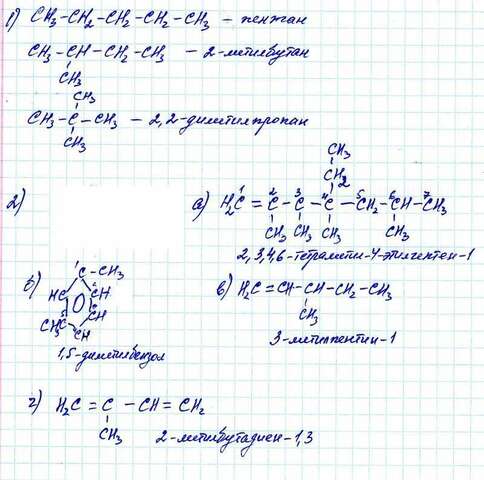 1) CH₃-CH₂-CH₂-CH₂-CH₃ - пентан
CH₃-CH-CH₂-CH₃ - 2-метилбутан
CH₃
CH₃
CH₃-C-CH₃ - 2,2-диметилпропан
CH₃
2)
CH₃
CH₂
а) H₂C¹=C²-C³-C⁴-C⁵H₂-C⁶H-C⁷H₃
CH₃ CH₃ CH₃ CH₃
2,3,4,6-тетраметил-4-этилгептен-1
б) ¹C-CH₃
HC CH
CH₃C⁵ CH
CH
1,5-диметилбензол
в) H₂C=CH-CH-CH₂-CH₃
CH₃
3-метилпентин-1
г) H₂C=C-CH=CH₂
CH₃
2-метилбутадиен-1,3